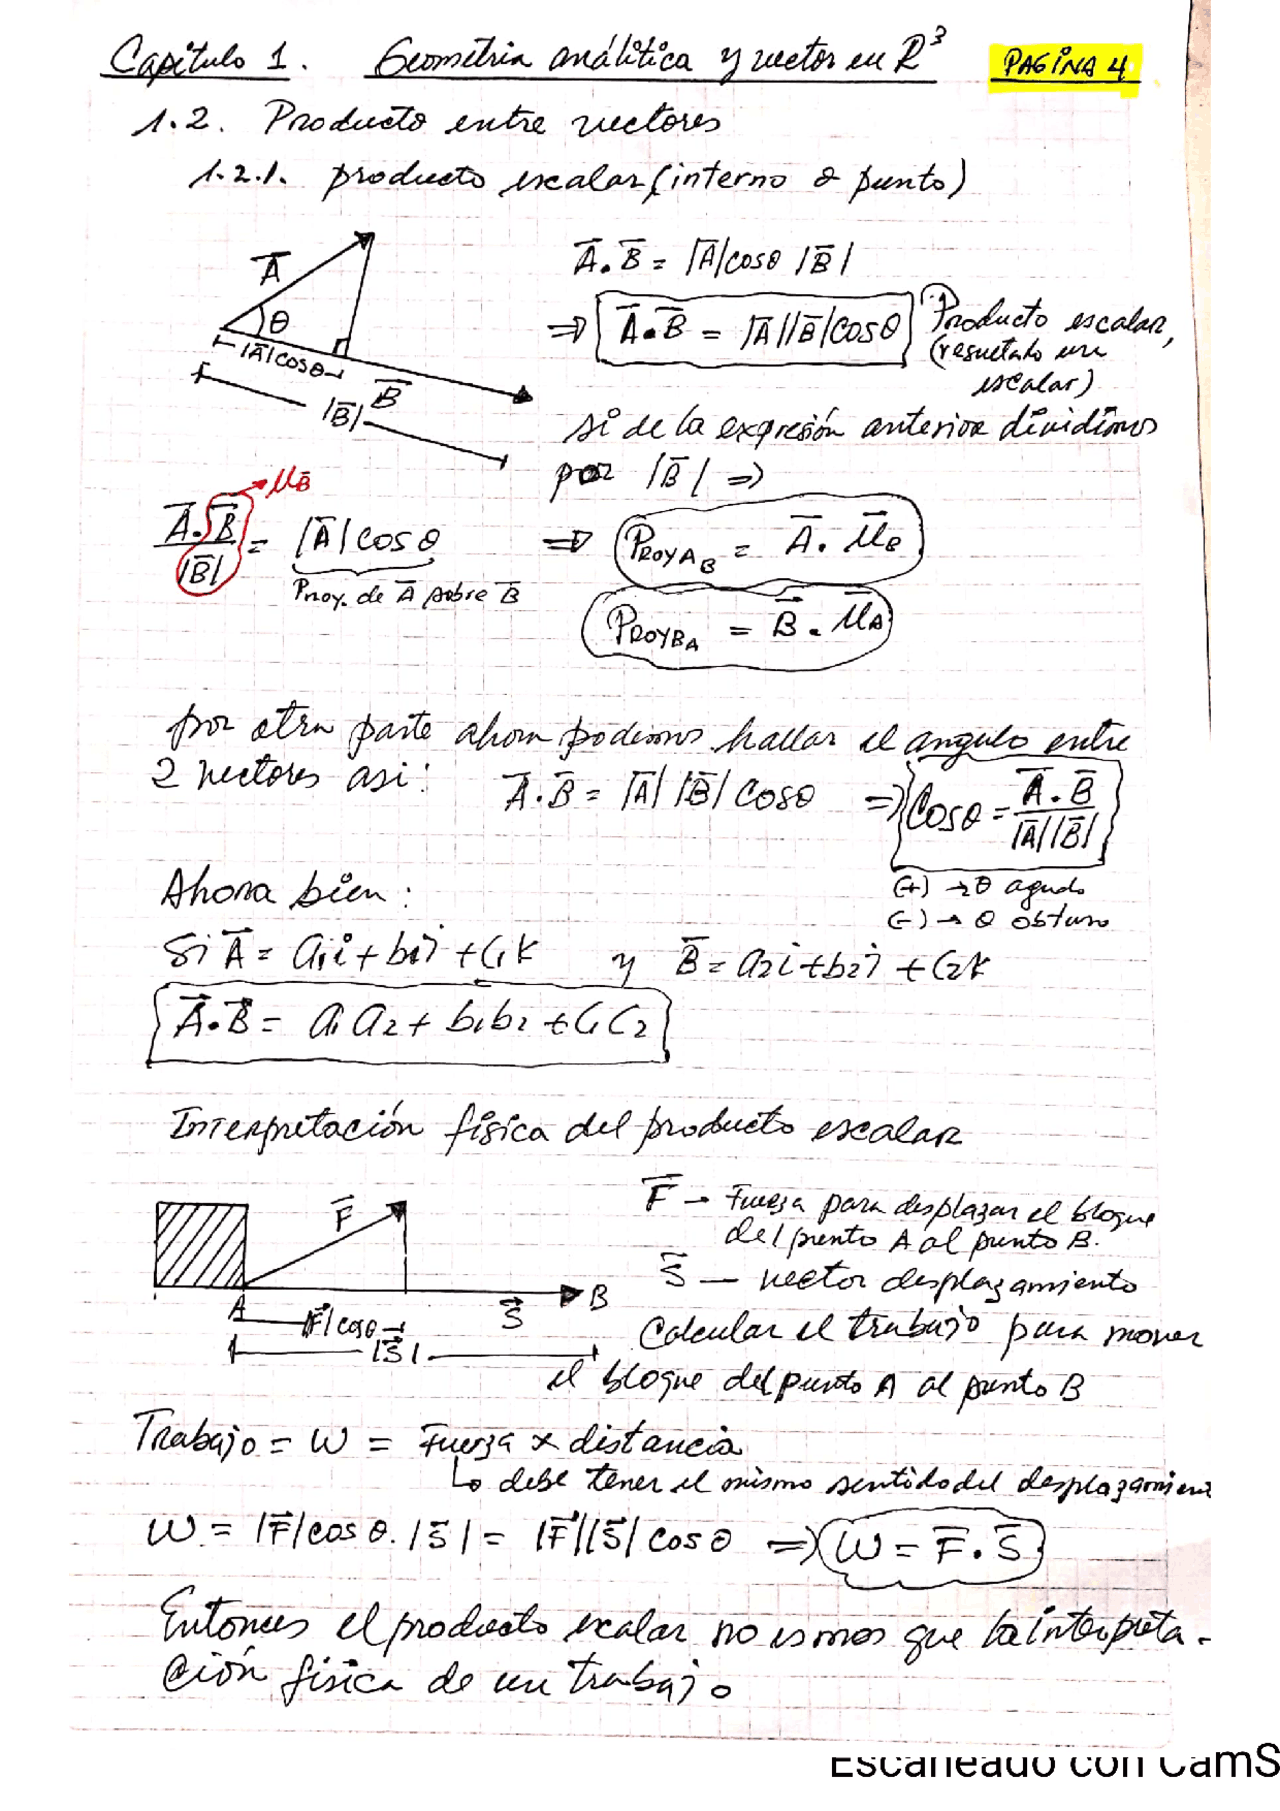 Capítulo 1. Geometria analítica y vector en R³ PAGINA 4
1.2. Producto entre vectores
1.2.1. producto escalar (interno o punto)
A̅
θ
|A̅|cosθ
B̅
|B̅|
A̅.B̅ = |A̅|cosθ |B̅|
⇒ A̅.B̅ = |A̅||B̅|cosθ Producto escalar,
(resultado un
escalar)
si de la expresión anterior dividimos
por |B̅| ⇒
μB̅
A̅.B̅/|B̅| = |A̅|cosθ ⇒ PROYA_B = A̅.μ̅_B
Proy. de A̅ sobre B̅
PROYB_A = B̅.μ̅_A
por otra parte ahora podemos hallar el angulo entre
2 vectores asi: A̅.B̅ = |A̅||B̅|cosθ ⇒ Cosθ = A̅.B̅/|A̅||B̅|
(+) → θ agudo
(-) → θ obtuso
Ahora bien:
Si A̅ = a₁i + b₁j + c₁k y B̅ = a₂i + b₂j + c₂k
A̅.B̅ = a₁a₂ + b₁b₂ + c₁c₂
Interpretación física del producto escalar
F̅
A
|F̅|cosθ
S̅
B
|S̅|
F̅ → Fuerza para desplazar el bloque
del punto A al punto B.
S̅ — vector desplazamiento
Calcular el trabajo para mover
el bloque del punto A al punto B
Trabajo = W = Fuerza x distancia
↳ debe tener el mismo sentido del desplazamien
W = |F̅|cosθ.|S̅| = |F̅||S̅|cosθ ⇒ W = F̅.S̅
Entonces el producto escalar no es mas que la interpreta-
ción física de un trabajo
Escaneado con CamS